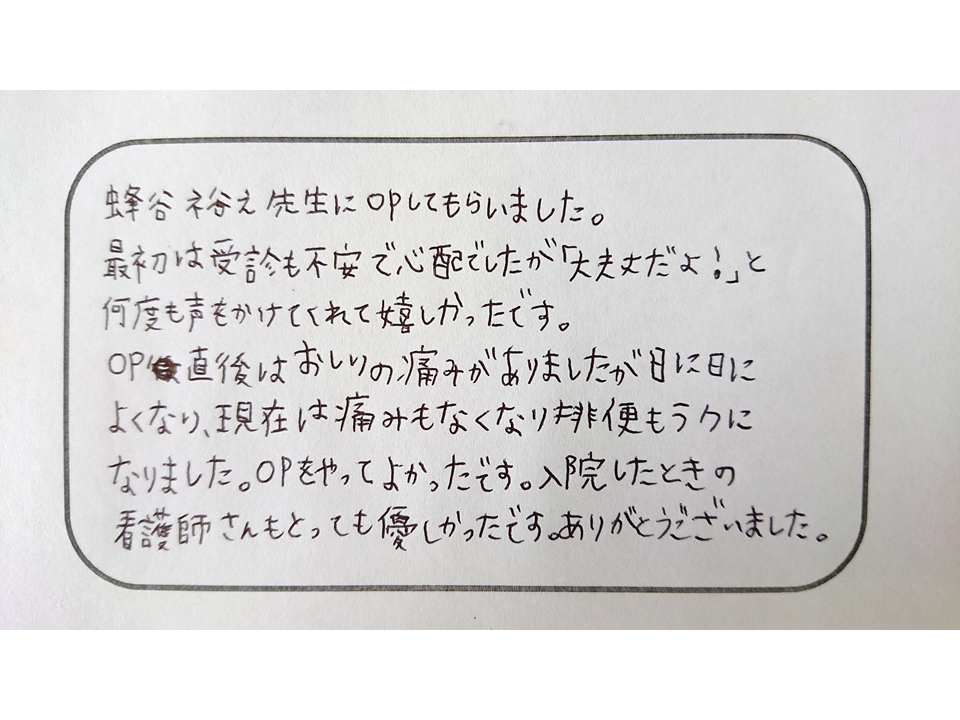 蜂谷 裕之 先生にOPしてもらいました。
最初は受診も不安で心配でしたが「大丈夫だよ!」と
何度も声をかけてくれて嬉しかったです。
OP直後はおしりの痛みがありましたが日に日に
よくなり、現在は痛みもなくなり排便もラクに
なりました。OPをやってよかったです。入院したときの
看護師さんもとっても優しかったです。ありがとうございました。